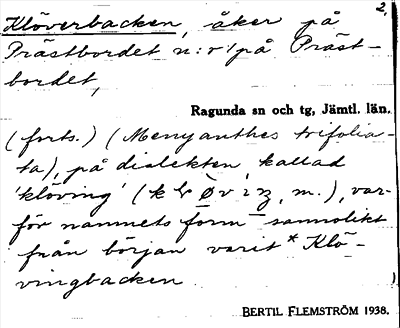 2.
Klöverbacken, åker på
Prästbordet n:r 1 på Präst-
bordet,
Ragunda sn och tg, Jämtl. län.
(forts.) (Menyanthes trifolia-
ta), på dialekten kallad
'klöving' (m.), var-
för namnets form sannolikt
från början varit *Klö-
vingbacken
BERTIL FLEMSTRÖM 1938.